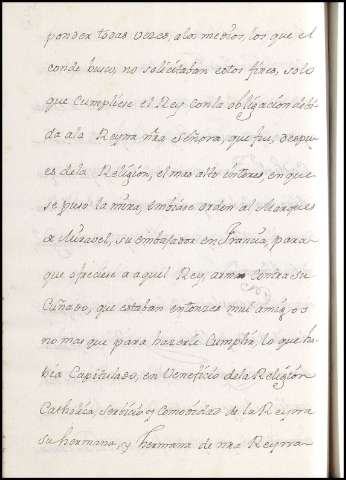 ponder todas veces, a los medios, los que el
conde busco, no solicitaban estos fines, solo
que Cumpliese el Rey con la obligacion debi-
da a la Reyna nra Señora, que fue, despu-
es de la Religion, el mas alto interes, en que
se puso la mira, embiase orden al Marques
de Miravel, su embajador en Francia, para
que ofreciese a aquel Rey, armas contra su
Cuñado, que estaban entonces mui amigos
no mas que para hacerle Cumplir, lo que ha-
bia Capitulado, en Veneficio de la Religion
Catholica, servicio y Comodidad de la Reyna
su hermana, y hermana de nra Reyna